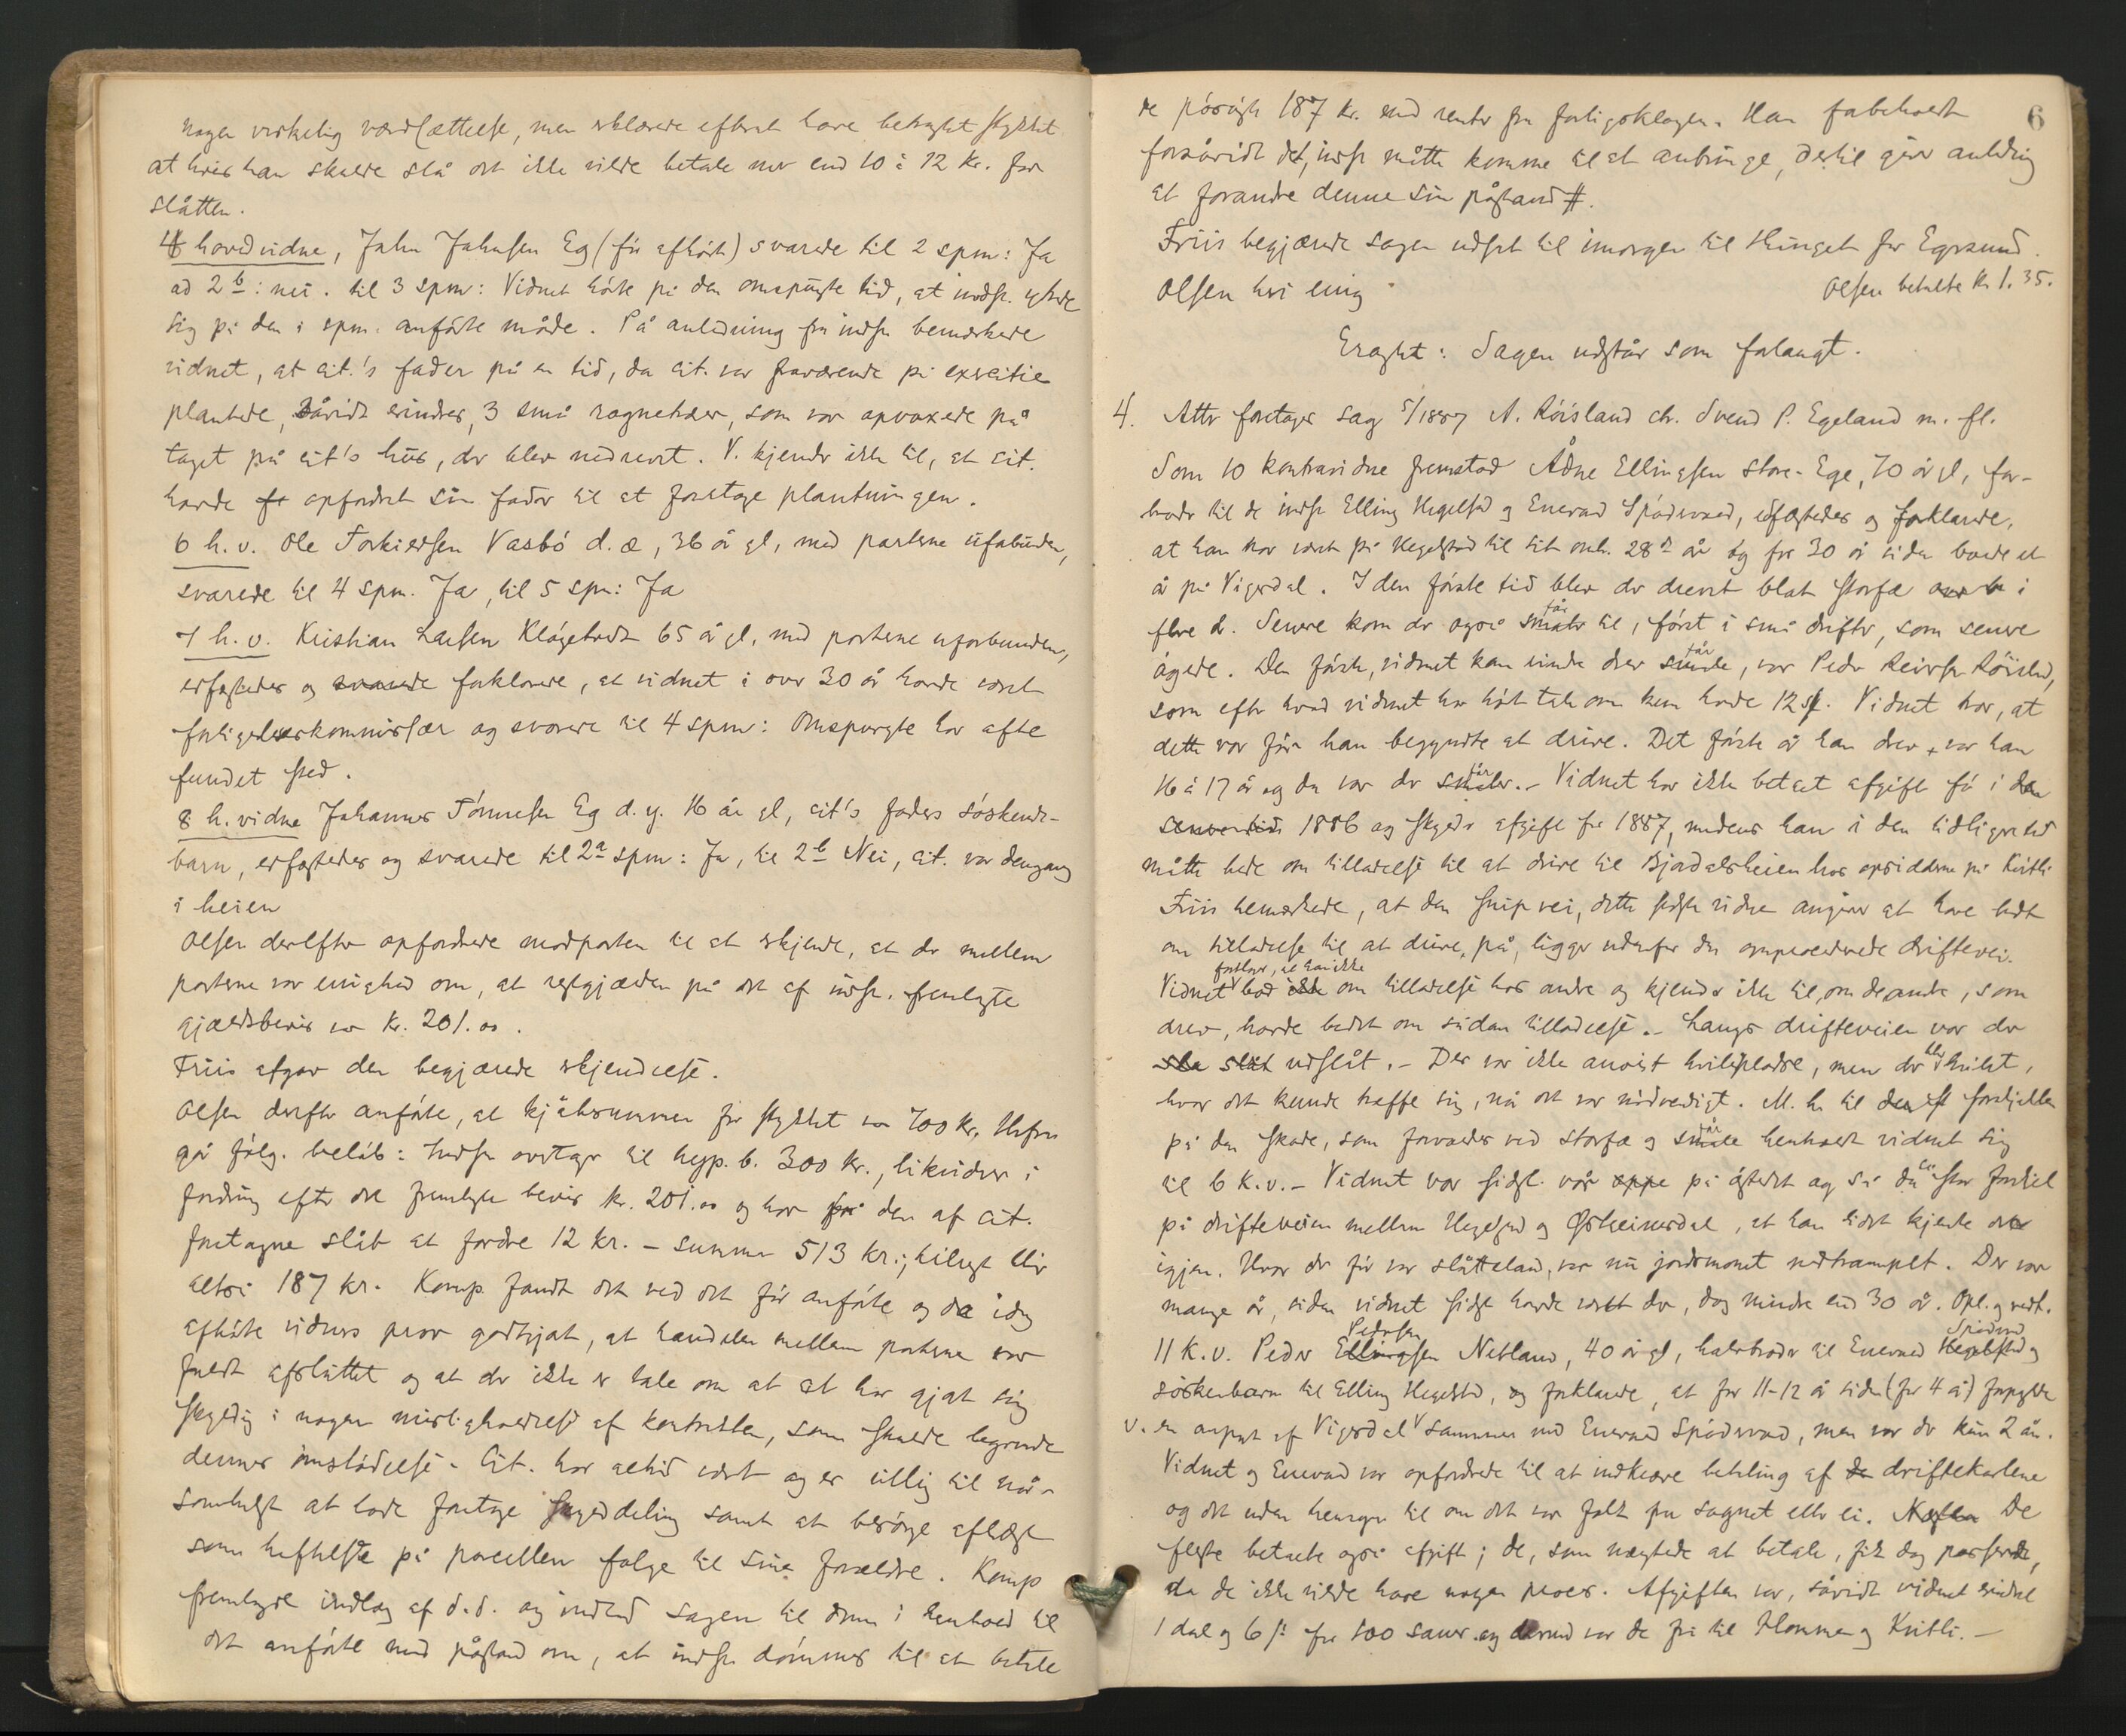 nogen virkelig værdsættelse, men erklærede efterat have betragtet stykket
at hvis han skulde slå det ikke vilde betale mer end 10 à 12 kr. for
slåtten.
4 hovedvidne, Jahn Jahnsen Eg (før afhørt) svarede til 2 spm: Ja
ad 2b: nei. til 3 spm: Vidnet hørte på den omspurgte tid, at indst. ytrede
sig på den i spm. anførte måde. På anledning fra indst. bemærkede
vidnet, at cit.'s fader på en tid, da cit. var fraværende på exercitie
plantede, såvidt erindres, 3 små rognetrær, som var opvoxede på
taget på cit's hus, der blev nedrevet. V. kjender ikke til, at cit.
havde opfordret sin fader til at foretage plantningen.
6 h. v. Ole Torkildsen Vasbø d. æ, 36 år gl, med parterne ufobunden,
svarede til 4 spm. Ja, til 5 spm: Ja
7 h. v. Kristian Larsen Kløgetvedt 65 år gl, med parterne uforbunden,
edfæstedes og svarede forklarede, at vidnet i over 30 år havde været
forligelseskommissær og svarede til 4 spm: Omspurgte har ofte
fundet sted.
8 h. vidne Johannes Tønnesen Eg d. y. 46 år gl, cit's faders søskende-
barn, edfæstedes og svarede til 2a spm: Ja, til 2b Nei, cit. var dengang
i heien
Olsen derefter opfordrede modparten til at erkjende, at der mellem
parterne var enighed om, at restgjælden på det af indst. fremlagte
gjældsbevis var kr. 201.00.
Friis afgav den begjærede erkjendelse.
Olsen derefter anførte, at kjøbesummen for stykket var 700 kr. Herfra
gå følg. beløb: Indst. overtager til hyp. b. 300 kr., likvideres i
fordring efter det fremlagte bevis kr. 201.00 og har for den af cit.
foretagne slåt at fordre 12 kr. – summa 513 kr.; tilrest blir
altså 187 kr. Komp. fandt det ved det før anførte og de idag
afhørte vidners prov godtgjort, at handelen mellem parterne var
fuldt afsluttet og at der ikke er tale om at cit har gjort sig
skyldig i nogen misligholdelse af kontrakten, som skulde begrunde
dennes omstødelse. Cit. har altid været og er villig til når-
somhelst at lade foretage skylddeling samt at besørge aflagt
som heftelse på parcellen følge til sine forældre. Komp
fremlagde indlæg af d.d. og indlod sagen til dom i henhold til
det anførte med påstand om, at indst. dømmes til at betale
6
de påsøgte 187 kr. med renter fra forligsklagen. Han forbeholdt
forsåvidt det, indst. måtte komme til at anbringe, dertil giver anledning
at forandre denne sin påstand #.
Friis begjærede sagen udsat til imorgen til thinget for Egersund.
Olsen heri enig
Olsen betalte kr 1.35.
Eragtet: Sagen udstår som forlangt.
4. Atter foretages sag 5/1887 A. Røisland ctr. Svend P. Egeland m. fl.
Som 10 kontravidne fremstod Ådne Ellingsen Store-Ege, 70 år gl, far-
broder til de indst. Elling Hegelstad og Enevald Spødervold, edfæstedes og forklarede,
at han har været på Hegelstad til sit omtr. 28de år og for 30 år siden boede et
år på Vigesdal. I den første tid blev der drevet blot storfæ i
flere år. Senere kom der også får til, først i små drifter, som senere
øgede. Den første, vidnet kan erindre drev får, var Peder Reiersen Røisland,
som efter hvad vidnet har hørt tale om kun havde 12 st. Vidnet tror, at
dette var før han begyndte at drive. Det første år han drev, var han
16 à 17 år og da var der får. – Vidnet har ikke betalt afgift før i den
senere tid 1886 og skylder afgift for 1887, medens han i den tidligere tid
måtte bede om tilladelse til at drive til Bjordalsheien hos opsidderne på Kvitli
Friis bemærkede, at den snip vei, dette sidste vidne angiver at have bedt
om tilladelse til at drive på, ligger udenfor den omprocederede driftevei.
Vidnet forklarer, at han ikke bad om tilladelse hos andre og kjender ikke til, om de andre, som
drev, havde bedet om sådan tilladelse. – Langs drifteveien var der
udslåt. – Der var ikke anvist hvilepladse, men der blev hvilet,
hvor det kunde træffe sig, når det var nødvendigt. M. h. til forskjellen
på den skade, som forvoldes ved storfæ og får henholdt vidnet sig
til 6 k.v. – Vidnet var sidste vår oppe på åstedet og så da en stor forskjel
på drifteveien mellem Hegelstad og Ørsteinsdal, at han lidet kjendte det
igjen. Hvor der før var slåtteland, var nu jordsmonet nedtrampet. Der var
mange år, siden vidnet sidst havde været der, dog mindre end 30 år. Opl. og vedt.
11 k.v. Peder Pedersen Netland, 40 år gl, halvbroder til Enevald Spødervold og
søskenbarn til Elling Hegelstad, og forklarede, at for 11-12 år siden (for 4 år) forpagtede
v. en anpart af Vigesdal sammen med Enevald Spødervold, men var der kun 2 år.
Vidnet og Enevald var opfordrede til at indkræve betaling af driftekarlene
og det uden hensyn til om det var folk fra sognet eller ei. De
fleste betalte også afgift; de, som nægtede at betale, fik dog passere,
da de ikke vilde have nogen proces. Afgiften var, såvidt vidnet erindrer
1 dal og 6 s for 100 sauer og dermed var de fri til Homme og Kvitli. –